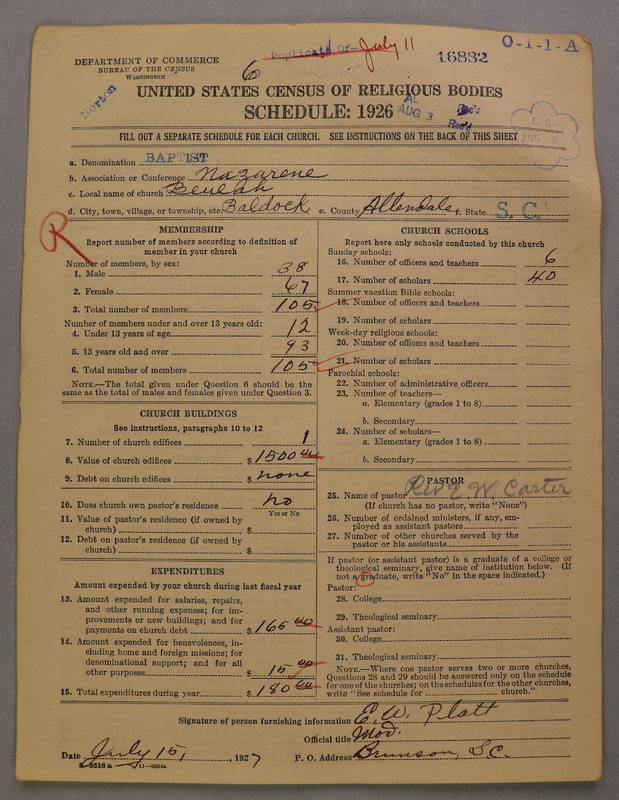 Duplicate Of- July 11
16832
O-1-1-A
DEPARTMENT OF COMMERCE
BUREAU OF THE CENSUS
WASHINGTON
6
Norton
UNITED STATES CENSUS OF RELIGIOUS BODIES
SCHEDULE: 1926
AUG 3
Rec'd
C. C.
AUG 3
FILL OUT A SEPARATE SCHEDULE FOR EACH CHURCH. SEE INSTRUCTIONS ON THE BACK OF THIS SHEET
a. Denomination BAPTIST
b. Association or Conference Nazarene
c. Local name of church Beulah
d. City, town, village, or township, etc. Baldock e. County Allendale f. State S. C.
R
MEMBERSHIP
Report number of members according to definition of member in your church
Number of members, by sex:
1. Male 38
2. Female 67
3. Total number of members 105
Number of members under and over 13 years old:
4. Under 13 years of age 12
5. 13 years old and over 93
6. Total number of members 105
NOTE.—The total given under Question 6 should be the
same as the total of males and females given under Question 3.
CHURCH BUILDINGS
See instructions, paragraphs 10 to 12
7. Number of church edifices 1
8. Value of church edifices $1500 00
9. Debt on church edifices $ none
10. Does church own pastor's residence no
Yes or No
11. Value of pastor's residence (if owned by
church) $
12. Debt on pastor's residence (if owned by
church) $
EXPENDITURES
Amount expended by your church during last fiscal year
13. Amount expended for salaries, repairs,
and other running expenses; for im-
provements or new buildings; and for
payments on church debt $165 00
14. Amount expended for benevolences, in-
cluding home and foreign missions; for
denominational support; and for all
other purposes $15 00
15. Total expenditures during year $180 00
CHURCH SCHOOLS
Report here only schools conducted by this church
Sunday schools:
16. Number of officers and teachers 6
17. Number of scholars 40
Summer vacation Bible schools:
18. Number of officers and teachers
19. Number of scholars
Week-day religious schools:
20. Number of officers and teachers
21. Number of scholars
Parochial schools:
22. Number of administrative officers
23. Number of teachers—
a. Elementary (grades 1 to 8)
b. Secondary
24. Number of scholars—
a. Elementary (grades 1 to 8)
b. Secondary
PASTOR
25. Name of pastor Rev E W Carter
(If church has no pastor, write "None")
26. Number of ordained ministers, if any, em-
ployed as assistant pastors
27. Number of other churches served by the
pastor or his assistants
If pastor (or assistant pastor) is a graduate of a college or
theological seminary, give name of institution below. (If
not a graduate, write "No" in the space indicated.)
Pastor:
28. College
29. Theological seminary
Assistant pastor:
30. College
31. Theological seminary
NOTE.—Where one pastor serves two or more churches,
Questions 28 and 29 should be answered only on the schedule
for one of the churches; on the schedules for the other churches,
write "See schedule for church."
Signature of person furnishing information E. W. Platt
Official title Mod.
Date July 15, 1927 P. O. Address Brunson, S.C.
8-3518a 11-9354a